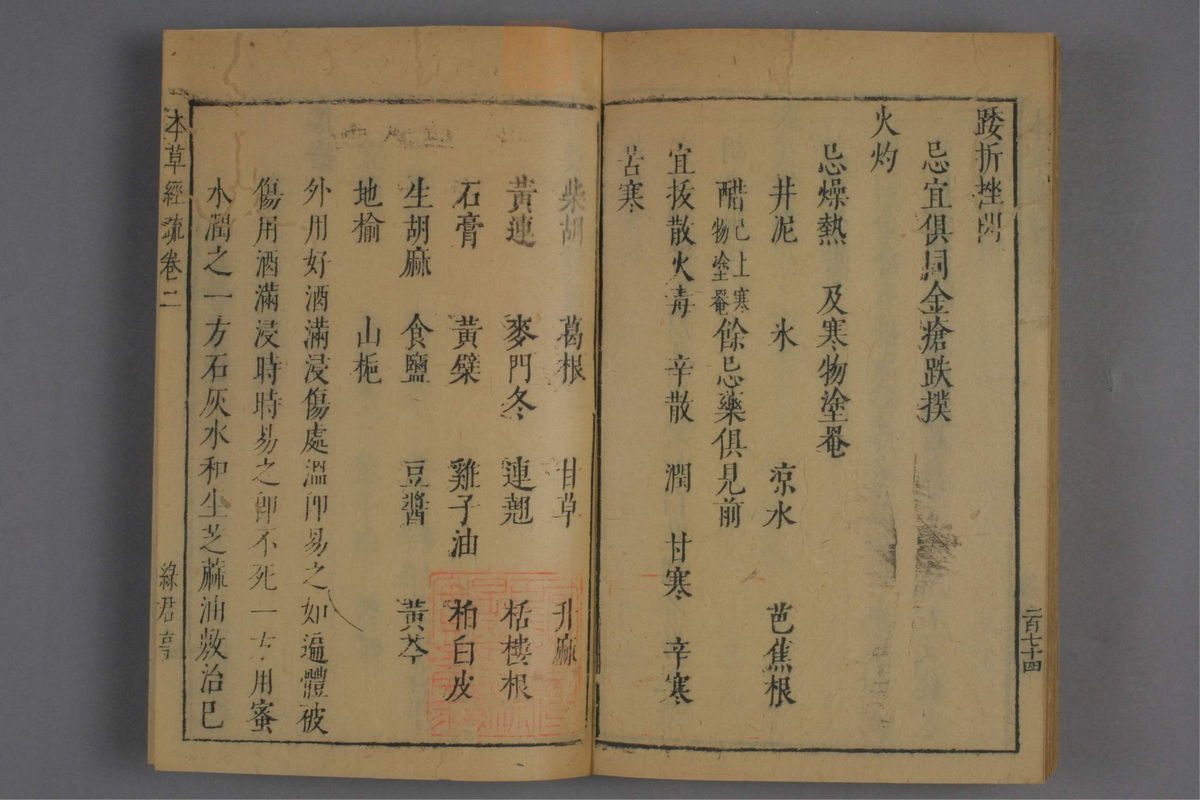 踒折挫閃
忌宜俱同金瘡跌撲
火灼
忌燥熱 及寒物塗罨
井泥 氷 凉水 芭焦根
醋已上寒物塗罨餘忌藥俱見前
宜拔散火毒 辛散 潤 甘寒 辛寒
苦寒
二百七十四
柴胡 葛根 甘草 升麻
黃連 麥門冬 連翹 栝樓根
石膏 黃檗 雞子油 柏白皮
生胡麻 食鹽 豆醬 黃芩
地榆 山梔
外用好酒滿浸傷處溫卽易之如遍體被
傷用酒滿浸時時易之卽不死一方用蜜
水潤之一方石灰水和尘芝蔴油敷治已
本草經疏卷二
綠君亭